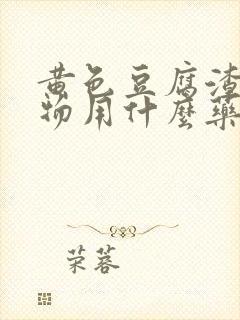 黄色豆腐渣
物用什麼藥
荣蓉